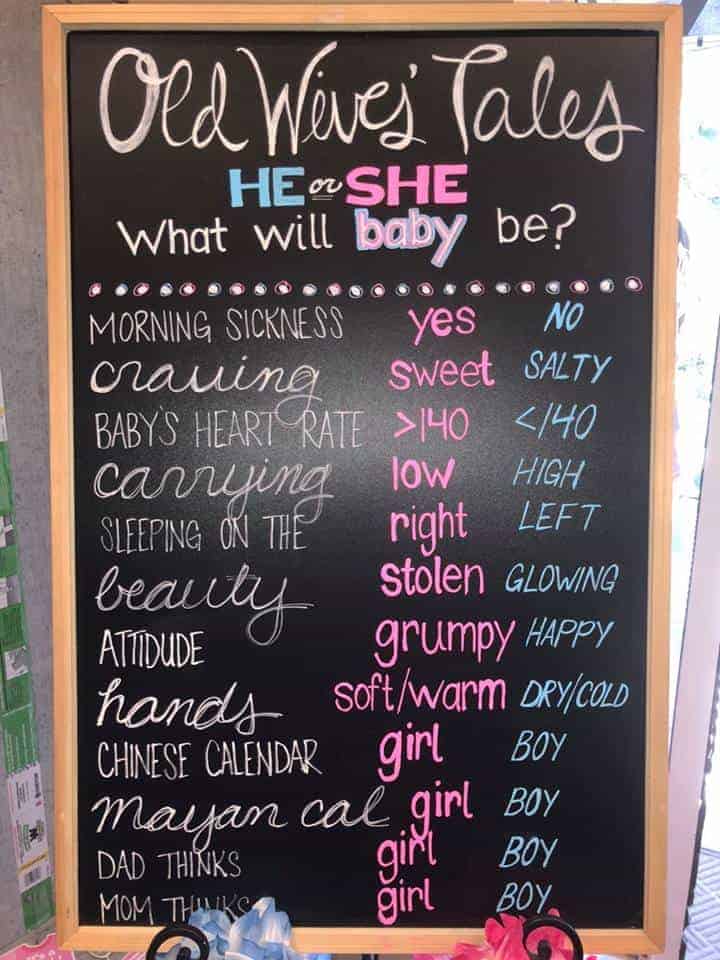 Old Wives' Tales
HE or SHE
What will baby be?
MORNING SICKNESS yes NO
craving sweet SALTY
BABY'S HEART RATE >140 <140
carrying low HIGH
SLEEPING ON THE right LEFT
beauty stolen GLOWING
ATTIDUDE grumpy HAPPY
hands soft/warm DRY/COLD
CHINESE CALENDAR girl BOY
mayan cal girl BOY
DAD THINKS girl BOY
MOM THINKS girl BOY